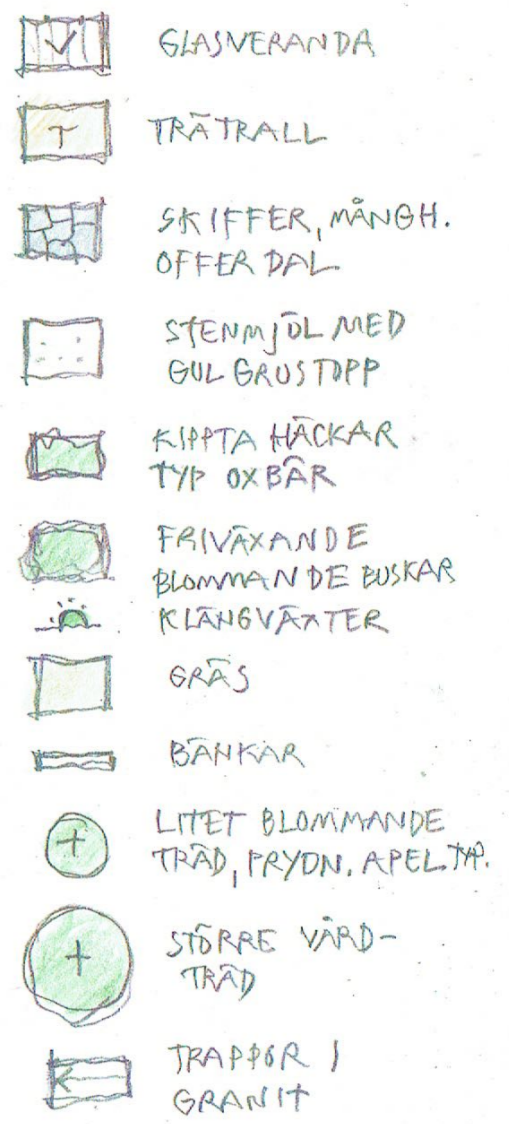 V GLASVERANDA
T TRÄTRALL
SKIFFER, MÅNGH.
OFFERDAL
STENMJÖL MED
GUL GRUSTOPP
KIPPTA HÄCKAR
TYP OXBÄR
FRIVÄXANDE
BLOMMANDE BUSKAR
KLÄNGVÄXTER
GRÄS
BÄNKAR
LITET BLOMMANDE
TRÄD, PRYDN. APEL TYP.
STÖRRE VÅRD-
TRÄD
TRAPPOR I
GRANIT